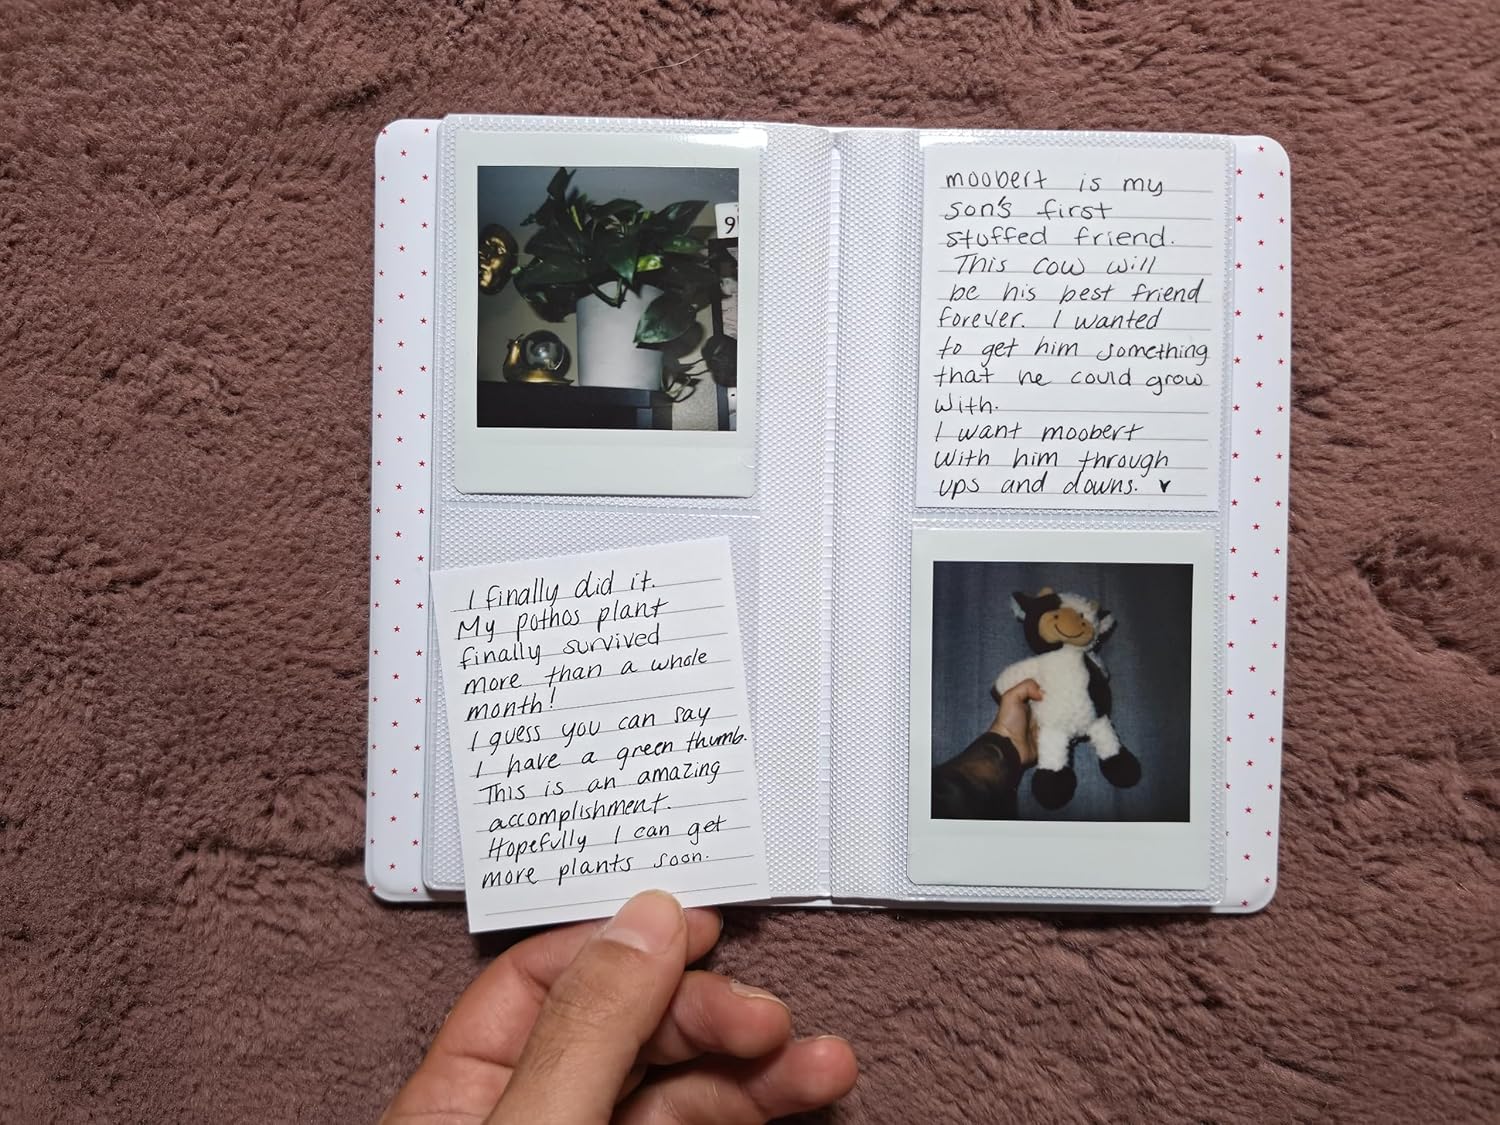 9
I finally did it.
My pothos plant
finally survived
more than a whole
month!
I guess you can say
I have a green thumb.
This is an amazing
accomplishment.
Hopefully I can get
more plants soon.
moobert is my
son's first
stuffed friend.
This cow will
be his best friend
forever. I wanted
to get him something
that he could grow
with.
I want moobert
with him through
ups and downs. ♥